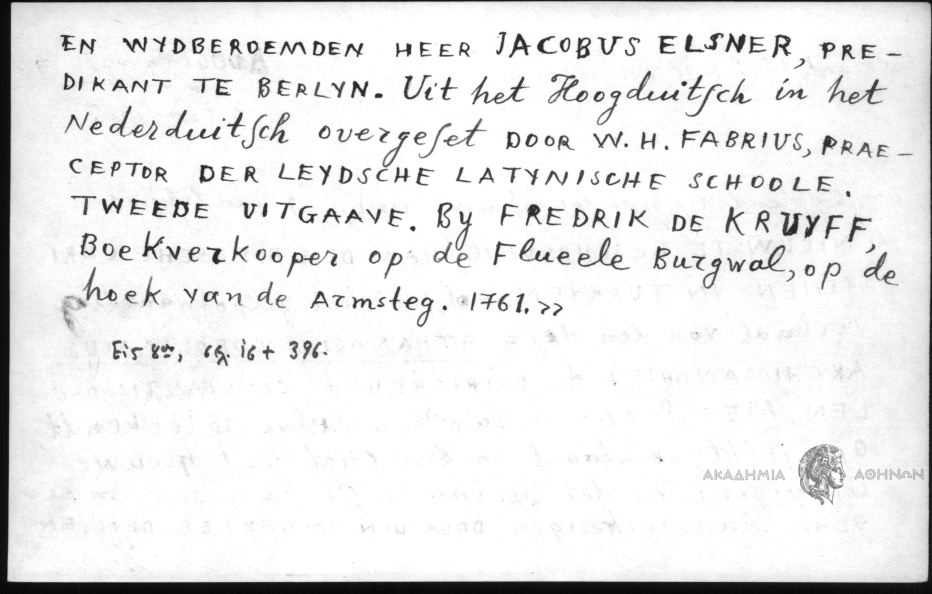 EN WYDBEROEMDEN HEER JACOBUS ELSNER, PRE-
DIKANT TE BERLYN. Uit het Hoogduitſch in het
Nederduitſch overgeſet DOOR W. H. FABRIUS, PRAE-
CEPTOR DER LEYDSCHE LATYNISCHE SCHOOLE.
TWEEDE UITGAAVE. By FREDRIK DE KRUYFF,
Boekverkooper op de Flueele Burgwal, op de
hoek van de Armsteg. 1761.»
Εἰς 8ον, σελ. ις + 396.
ΑΚΑΔΗΜΙΑ ΑΘΗΝΩΝ